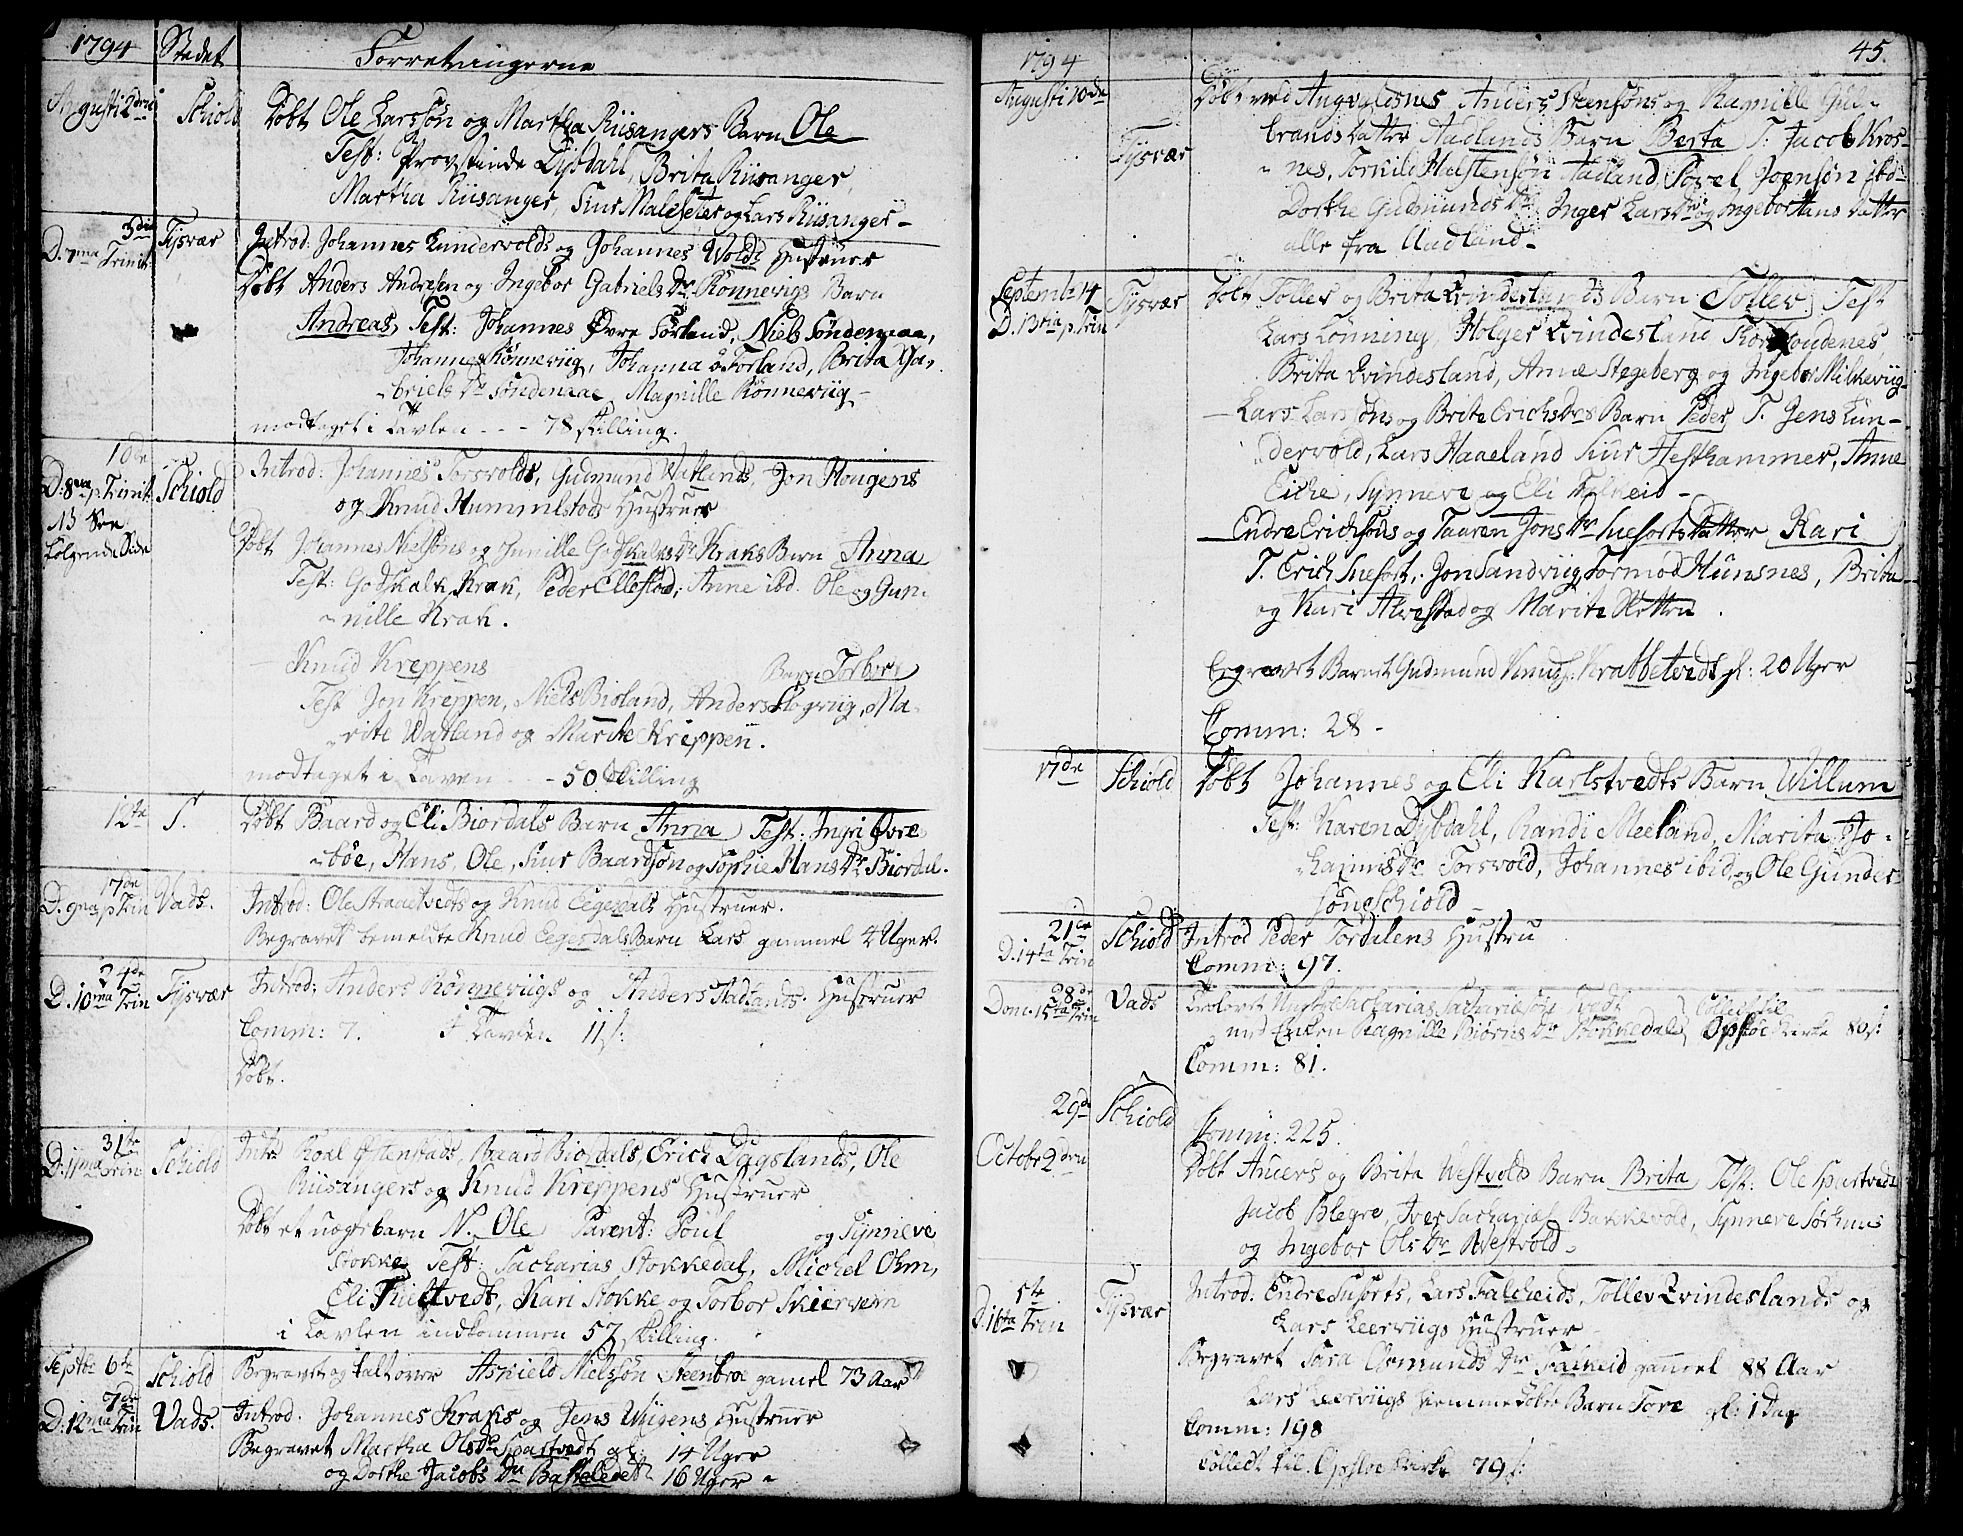 1794 Stedet Forretningerne
Augusti 2den Schiold Döbt Ole Larssøn og Martha Riisangers Barn Ole
Test: Provstinde Dybdahl, Brita Riisanger,
Martha Riisanger, Siur Maleseter og Lars Riisanger
3die Tysvær Introd. Johannes Lundervolds og Johannes Wolds Hustruer
D. 7ma Trinit. Döbt Anders Andresen og Ingebor Gabriels Dr Rönnevigs Barn
Andreas, Test: Johannes Øvre Førland, Niels Söndenaae,
Johannes Rönneviig, Johanna Førland, Brita Ga-
briels Dr Søndenaae Magnille Rönneviig
modtaget i Tavlen - - - 78 skilling.
10de D. 8va p. Trinit. Schiold Introd: Johannes Torsvolds, Gudmund Watlands, Jon Hougens
NB See og Knud Hummelstads Hustruer
følgende Side Döbt Johannes Nielsöns og Gunille Godskalks Dr Kraks Barn Anna
Test: Godskalk Krak, Peder Ellestad, Anne ibd. Ole og Gun-
nille Krak.
Knud Kreppens Barn Torbor
Test Jon Kreppen, Niels Bioland, Anders Skogviig, Ma-
rite Watland og Marite Kreppen.
modtaget i Taven - - - 50 Skilling
12te S. Döbt Baard og Eli Biordals Barn Anna Test: Ingri Øvre-
bøe, Hans, Ole, Siur Baardsøn og Sophie Hans Dr Biordal.
17de D. 9na p Trin Vads. Introd: Ole Straaetvedts og Knud Eegedals Hustruer.
Begravet bemeldte Knud Eegedals Barn Lars gammel 4 Uger.
24de D. 10ma Trin Tysvær Introd: Anders Rönneviigs og Anders Aadlands Hustruer
Comm: 7. I Tavlen 11 s:
Döbt.
31te D. 11ma Trin Schiold Intr Roal Østenstads, Baard Biordals, Erich Dagslands, Ole
Riisangers og Knud Kreppens Hustruer
Döbt et uægte barn N. Ole Parent: Poul og Synneve
Stokke Test: Sacharias Stokkedal, Michel Ohm,
Eli Tveitvedt, Kari Stokke og Torbor Skierveim
i Tavlen indkommen 57 skilling.
Septbr 6te Schiold Begravet og kalt over Asmield Nielsøn Steenbroe gamel 73 Aar
7de D. 12ma Trin Vads. Introd. Johannes Kraks og Jens Wiigens Hustruer
Begravet Martha Ols Dr Svartvedt gl: 14 Uger
og Dorthe Jacobs Dr Basteledet 16 Uger
1794 45.
Augusti 10de Döbt ved Augvaldsnes Anders Steensøns og Ragnille Gud-
Tysvær brands Datter Aadlands Barn Berta T. Jacob Kros-
nes, Torkild Halstensön Aadland, Povel Joensøn ibd
Dorthe Gudmunds Dr Inger Lars Dr og Ingebor Hans Datter
alle fra Aadland
Septemb. 14 Tysvær Döbt Tollev og Brita Qvindeslands Barn Tollev, Test
D. 13tia p. Trin Lars Lönning, Holger Qvindesland Tor
Brita Qvindesland, Anne Stegeberg og Ingebor Milkeviig
Lars Larssøns og Brite Erichs Drs Barn Peder T. Jens Lun-
dervold, Lars Haaeland Siur Hesthammer, Anne
Eiche, Synneve og Eli Falkeid
Endre Ericksöns og Taaren Jons Dr Suesorts Datter Kari
T. Erich Suesort, Jon Sandviig Tormod Hunsnes, Brita
og Kari Alvestad og Marite Sletten.
Begravet Barnet Gudmund Knuds: Krabbetvedt gl: 20 Uger
Comm: 28
17de Schiold Döbt Johannes og Eli Karlstvedts Barn Willum
Test: Karen Dybdahl, Randi Meeland, Marita Jo-
hannis Dr Torsvold, Johannes ibid og Ole Gunder
söne Schiold
21de D. 14ta Trin Schiold Introd Peder Tordalens Hustru
Comm: 97.
28de Dom. 15ta Trin Vads Trolovet Sacharias Sachariesøn Tvedt Collect til
med Enken Ragnille Biørns Dr Stokkedal, Opsloe Kirke 80 s:
Comm: 81.
29de Schiold Comm: 225.
Octobr 2den Döbt Anders og Brita Westvolds Barn Brita Test: Ole Svartvedt
Jacob Blegre, Iver Sacharias: Bakkevold, Synneve Sørhuus
og Ingebor Ols Dr Westvold
5te D. 16ta Trin Tysvær Introd: Endre Susorts, Lars Falcheids, Tollev Qvindeslands og
Lars Leerviigs Hustruer
Begravet Sara Osmunds Dr Falkeid gammel 88 Aar
Lars Leerviigs hiemmedøbte Barn Tore gl: 1 Dag
Comm: 198
Collect til Opsloe Kirke 79 s: